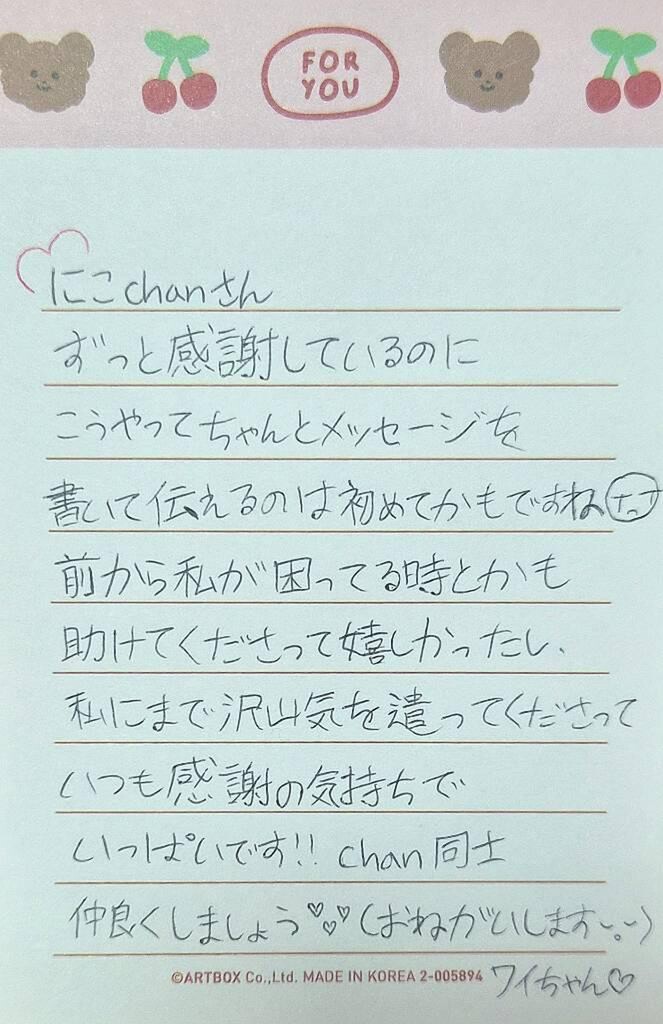 FOR
YOU
にこchanさん
ずっと感謝しているのに
こうやってちゃんとメッセージを
書いて伝えるのは初めてかもですね
前から私が困ってる時とかも
助けてくださって嬉しかったし、
私にまで沢山気を遣ってくださって
いつも感謝の気持ちで
いっぱいです!! chan同士
仲良くしましょう♡♡♡(おねがいします〜。〜)
©ARTBOX Co.,Ltd. MADE IN KOREA 2-005894 ワイちゃん♡